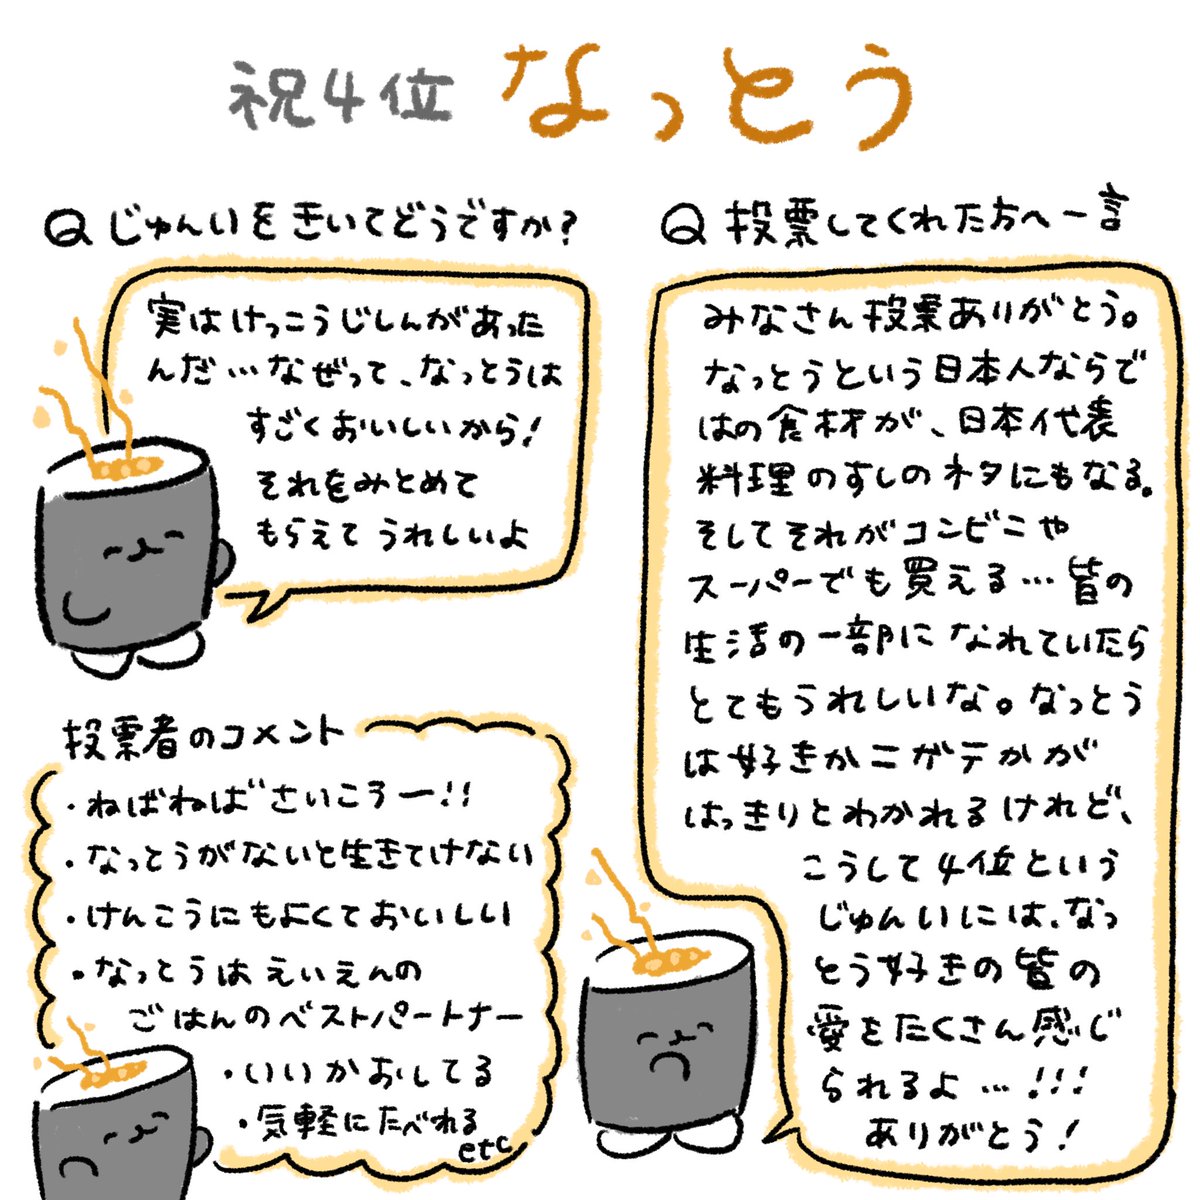 祝4位 なっとう
Q じゅんいをきいてどうですか?
実はけっこうじしんがあった
んだ…なぜって、なっとうは
すごくおいしいから!
それをみとめて
もらえてうれしいよ
Q 投票してくれた方へ一言
みなさん投票ありがとう。
なっとうという日本人ならで
はの食材が、日本代表
料理のすしのネタにもなる。
そしてそれがコンビニや
スーパーでも買える…皆の
生活の一部になれていたら
とてもうれしいな。なっとう
は好きかニガテかが
はっきりとわかれるけれど、
こうして4位という
じゅんいには、なっ
とう好きの皆の
愛をたくさん感じ
られるよ…!!!
ありがとう!
投票者のコメント
・ねばねばさいこうー!!
・なっとうがないと生きてけない
・けんこうにもよくておいしい
・なっとうはえいえんの
ごはんのベストパートナー
・いいかおしてる
・気軽にたべれる
etc